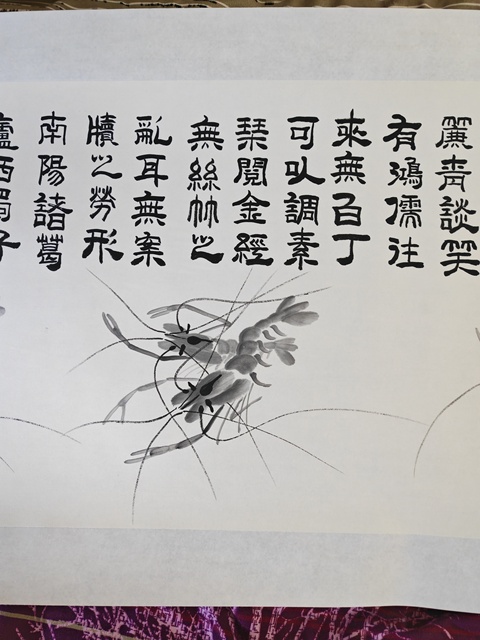 簾青談笑
有鴻儒往
來無百丁
可以調素
琹閱金經
無絲竹之
亂耳無案
牘之勞形
南陽諸葛
廬西蜀子